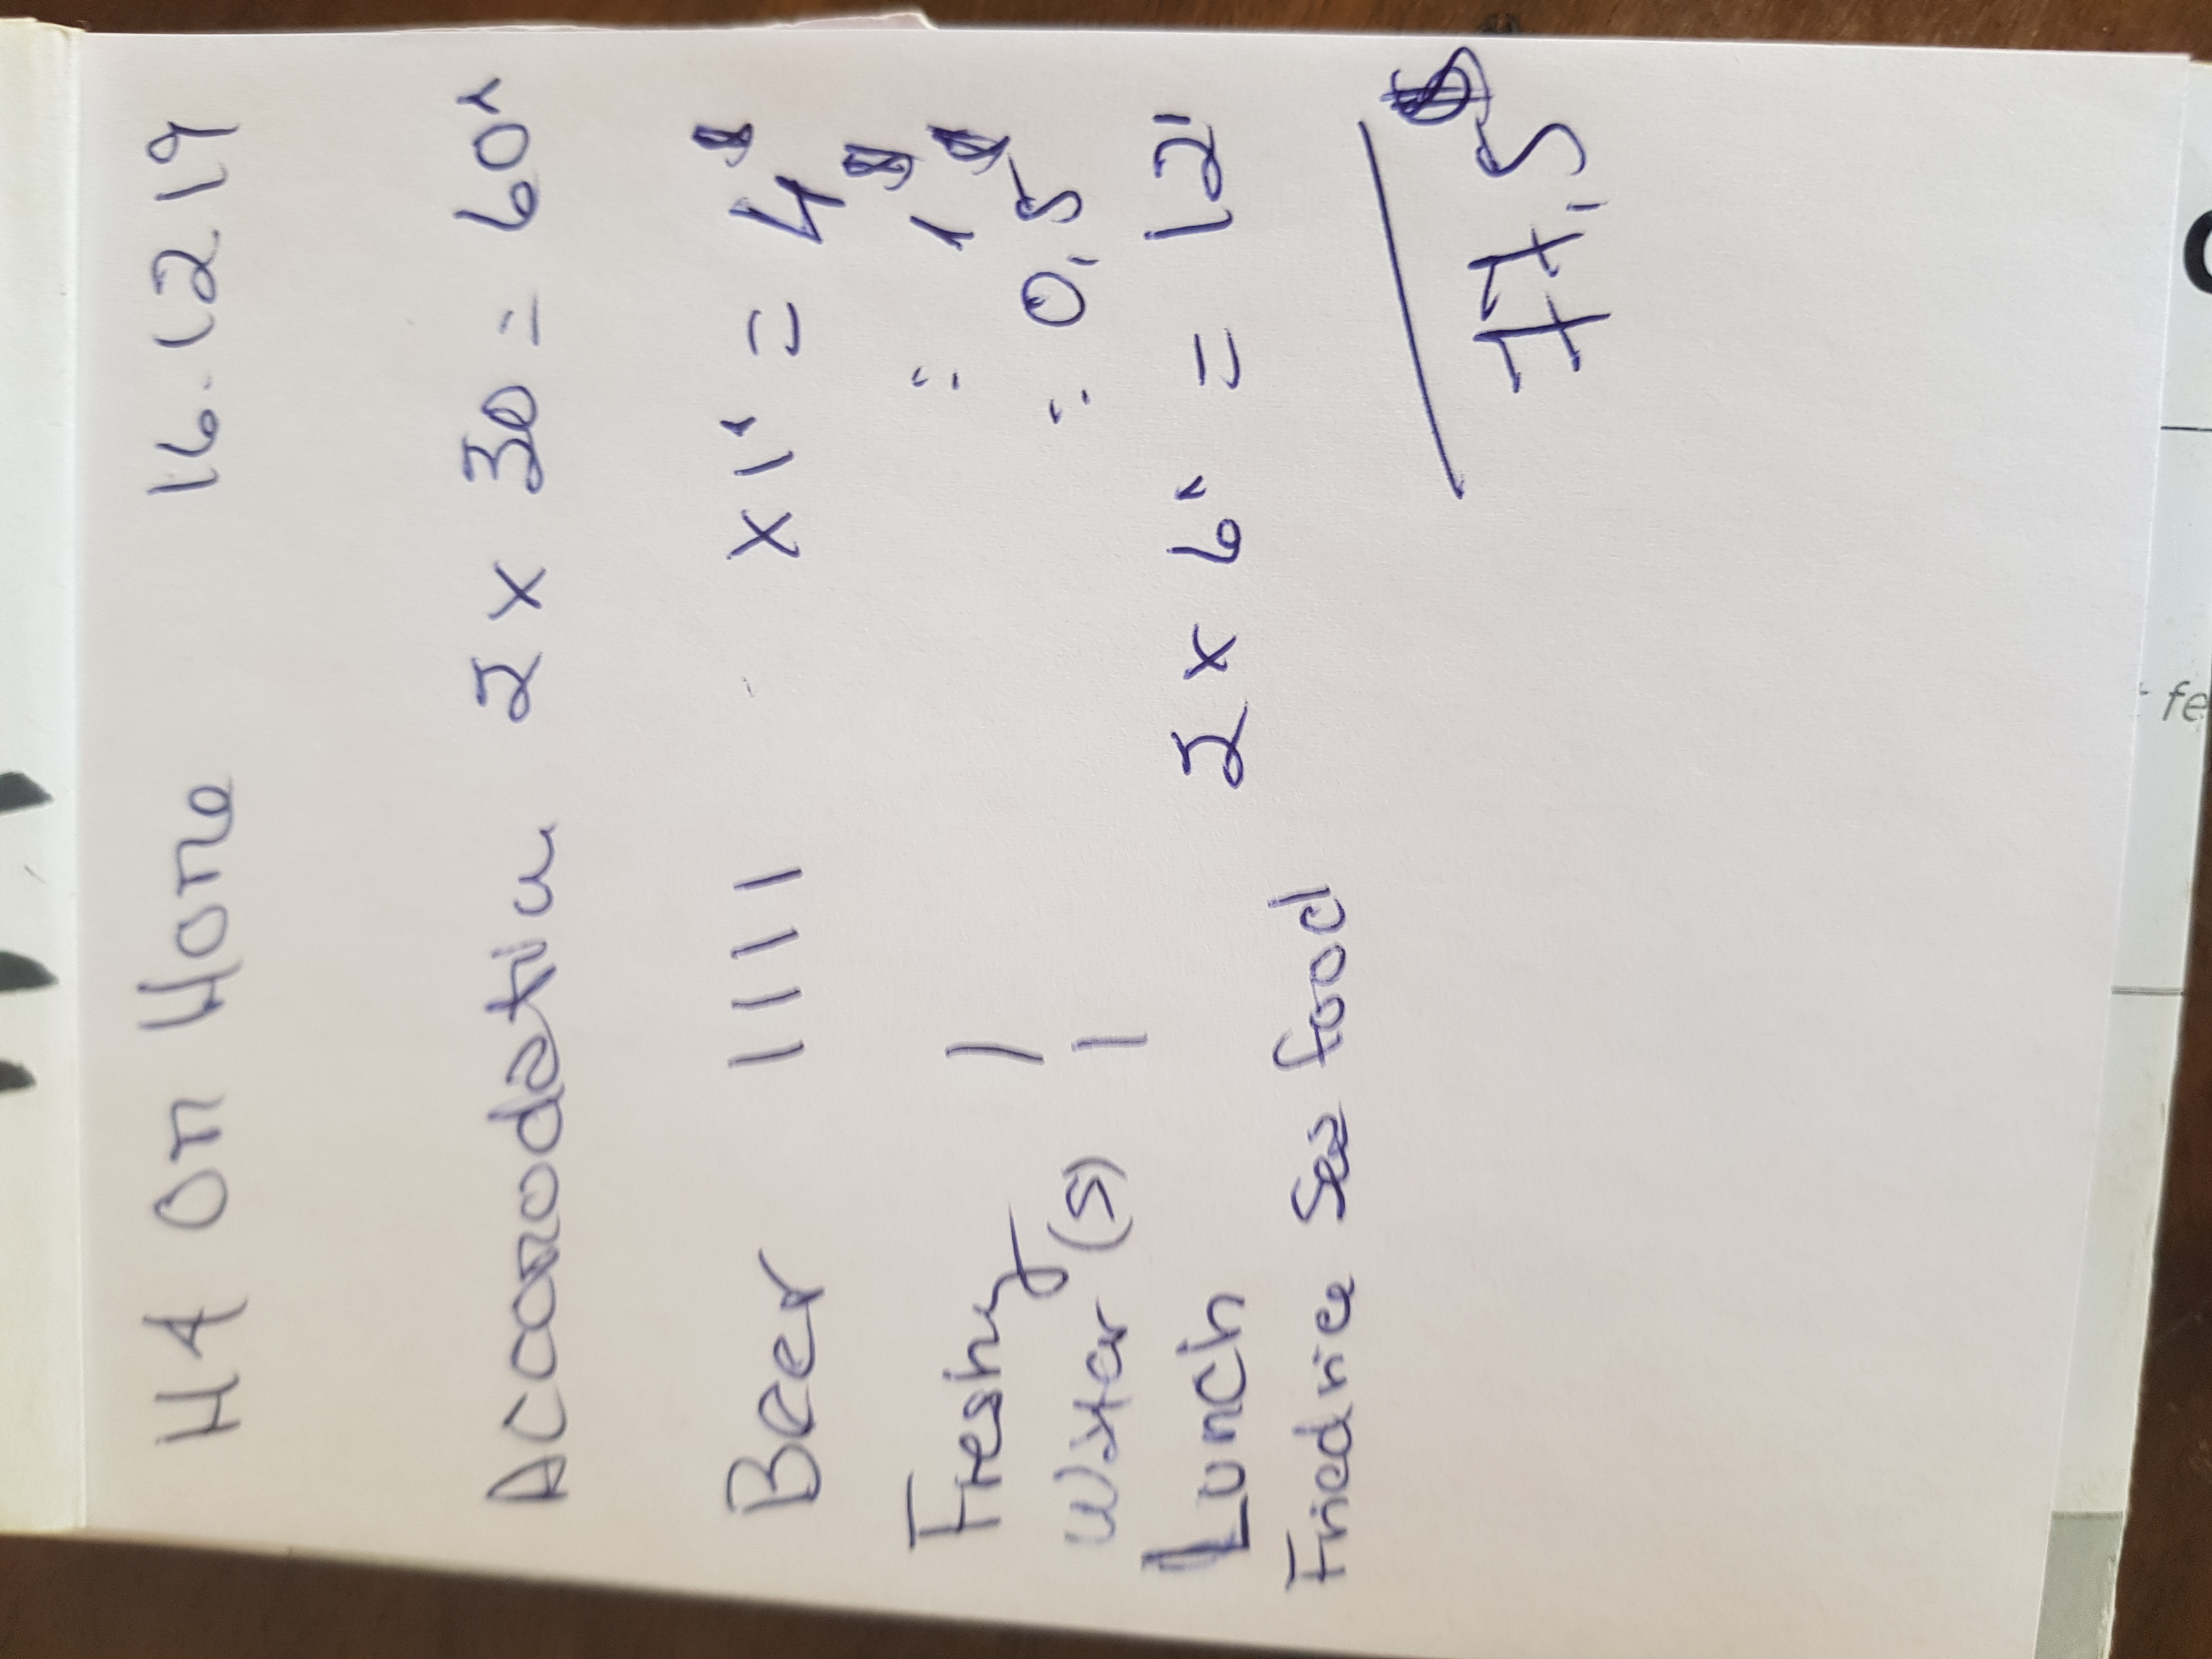 H4 On Home 16.12.19
Accomodation 2 x 30 = 60
Beer IIII x 1 = 4 $
Freshy I " 1 $
Water (S) I " 0,5 $
Lunch 2 x 6 = 12
Fried rice Sea food
77,5 $
fe